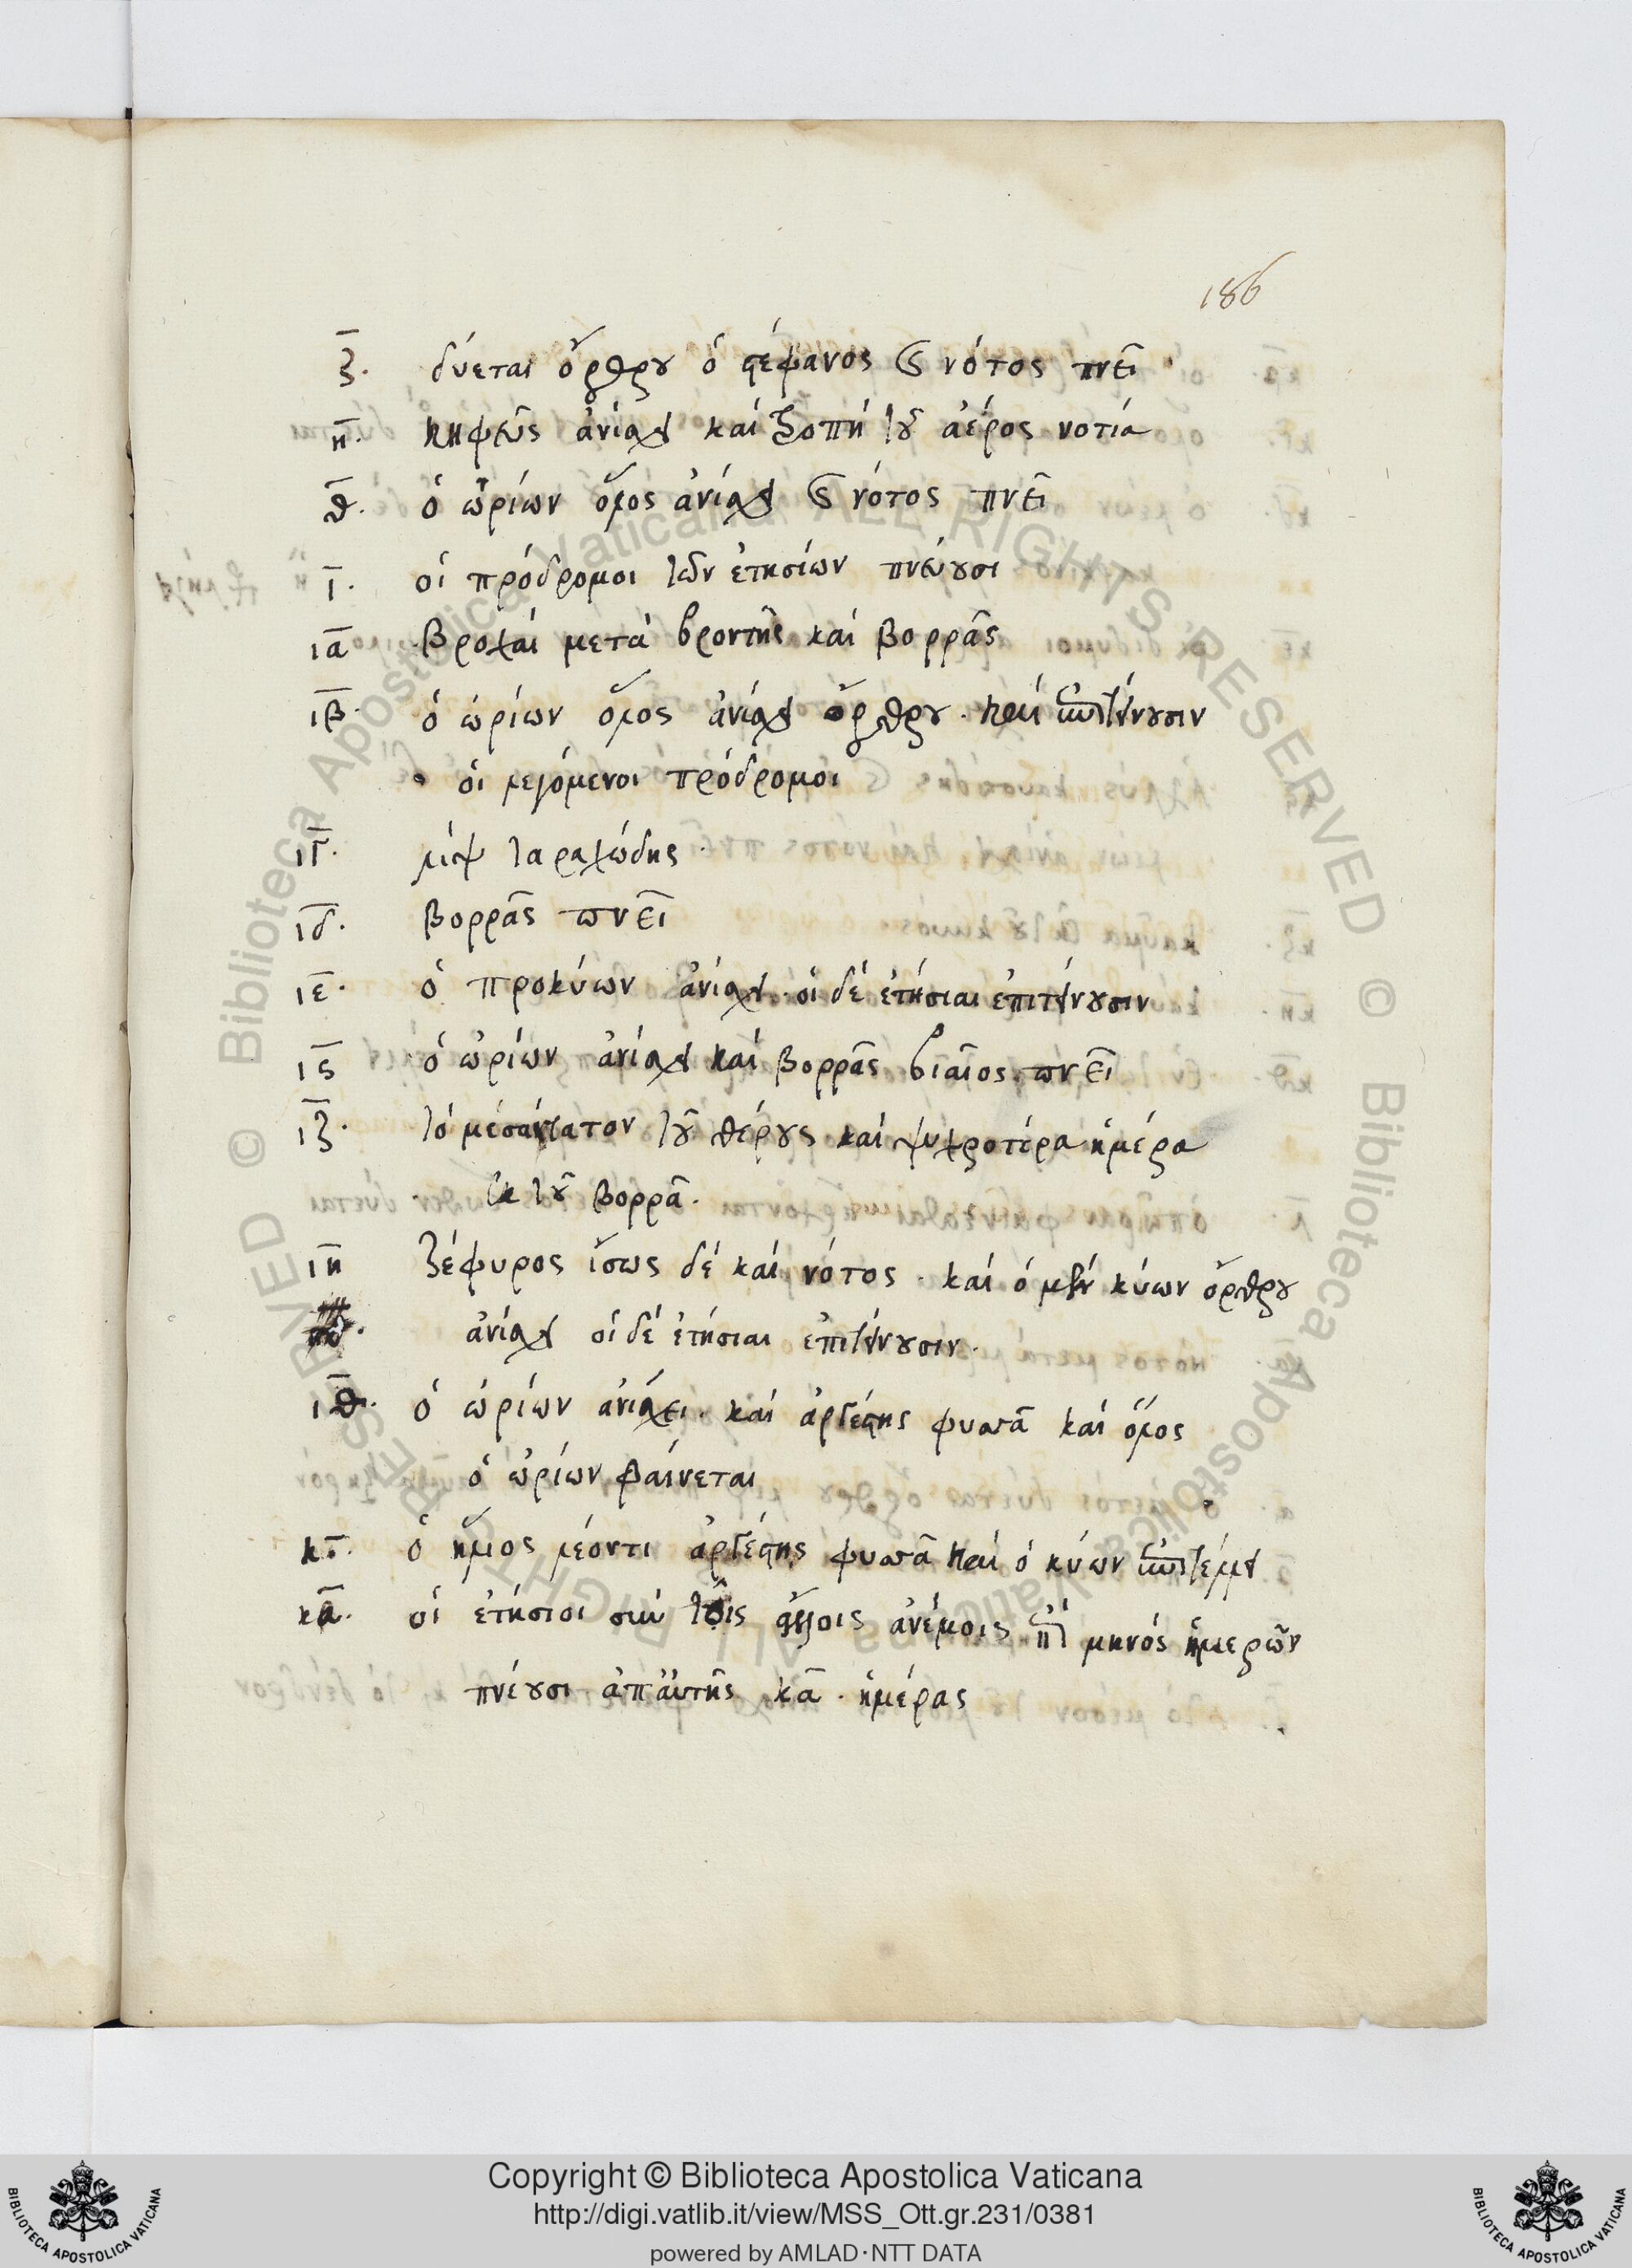 186
ζ. δύεται ὄρθρου ὁ στέφανος καὶ νότος πνεῖ
η. κηφεὺς ἀνίσχει καὶ τροπὴ τοῦ ἀέρος νοτία
θ. ὁ ὠρίων ὅλος ἀνίσχει καὶ νότος πνεῖ
ι. οἱ πρόδρομοι τῶν ἐτησίων πνέουσι
ια βροχαὶ μετὰ βροντῆς καὶ βορρᾶς
ιβ. ὁ ὠρίων ὅλος ἀνίσχει ὄρθρου. καὶ ἐπιτείνουσιν
οἱ λεγόμενοι πρόδρομοι
ιγ. λὶψ ταραχώδης.
ιδ. βορρᾶς πνεῖ
ιε. ὁ προκύων ἀνίσχει. οἱ δὲ ἐτήσιαι ἐπιτείνουσιν
ις ὁ ὠρίων ἀνίσχει καὶ βορρᾶς βιαῖος πνεῖ
ιζ. τὸ μεσαίτατον τοῦ θέρους καὶ ψυχροτέρα ἡμέρα
ἐκ τοῦ βορρᾶ.
ιη ζέφυρος ἴσως δὲ καὶ νότος. καὶ ὁ μὲν κύων ὄρθρου
ἀνίσχει οἱ δὲ ἐτήσιαι ἐπιτείνουσιν.
ιθ. ὁ ὠρίων ἀνίσχει. καὶ ἀργέστης φυσᾶ καὶ ὅλος
ὁ ὠρίων φαίνεται
κ. ὁ ἥλιος λέοντι ἀργέστης φυσᾶ καὶ ὁ κύων ἐπιτέλλει
κα. οἱ ἐτήσιοι σὺν τοῖς ἄλλοις ἀνέμοις ἐπὶ μηνὸς ἡμερῶν
πνέουσι ἀπ' αὐτῆς κα. ἡμέρας
Copyright © Biblioteca Apostolica Vaticana
http://digi.vatlib.it/view/MSS_Ott.gr.231/0381
powered by AMLAD·NTT DATA